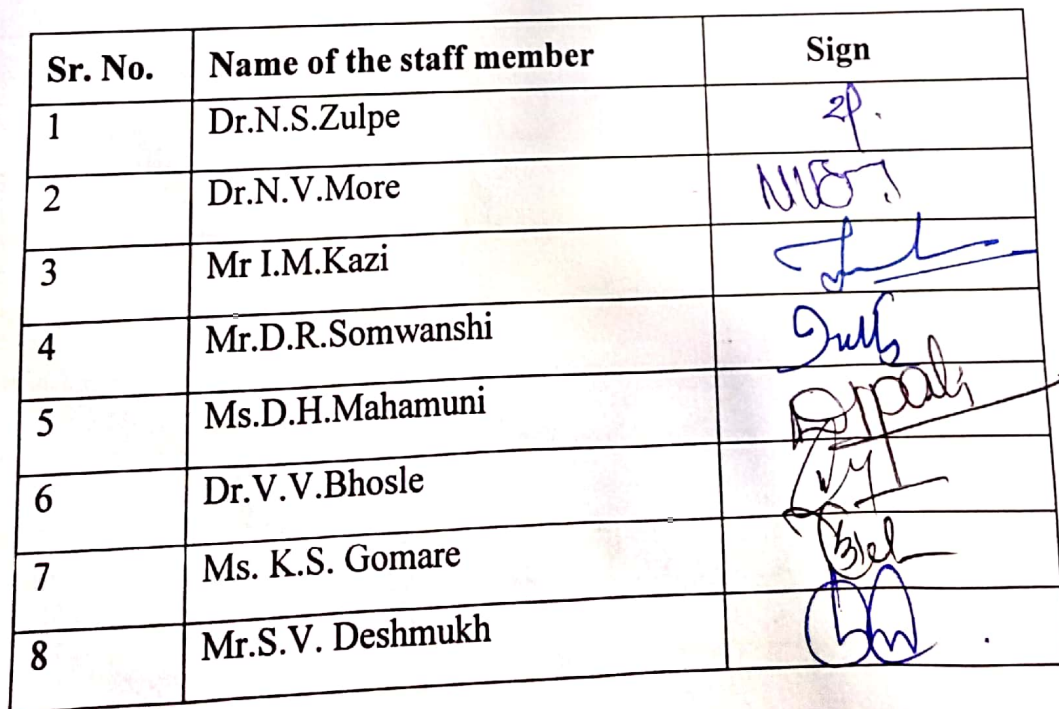 Sr. No. Name of the staff member Sign
1 Dr.N.S.Zulpe
2 Dr.N.V.More
3 Mr I.M.Kazi
4 Mr.D.R.Somwanshi
5 Ms.D.H.Mahamuni
6 Dr.V.V.Bhosle
7 Ms. K.S. Gomare
8 Mr.S.V. Deshmukh